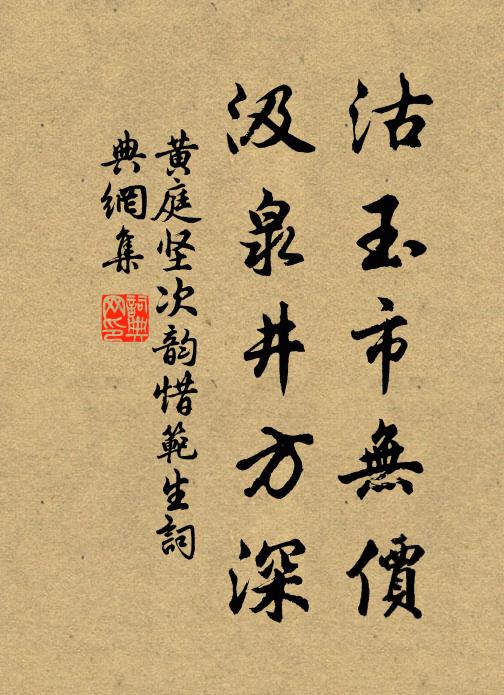 沽玉市無價
汲泉井方深
黄庭坚次韵惜範生詞
典網集
詞典
网印